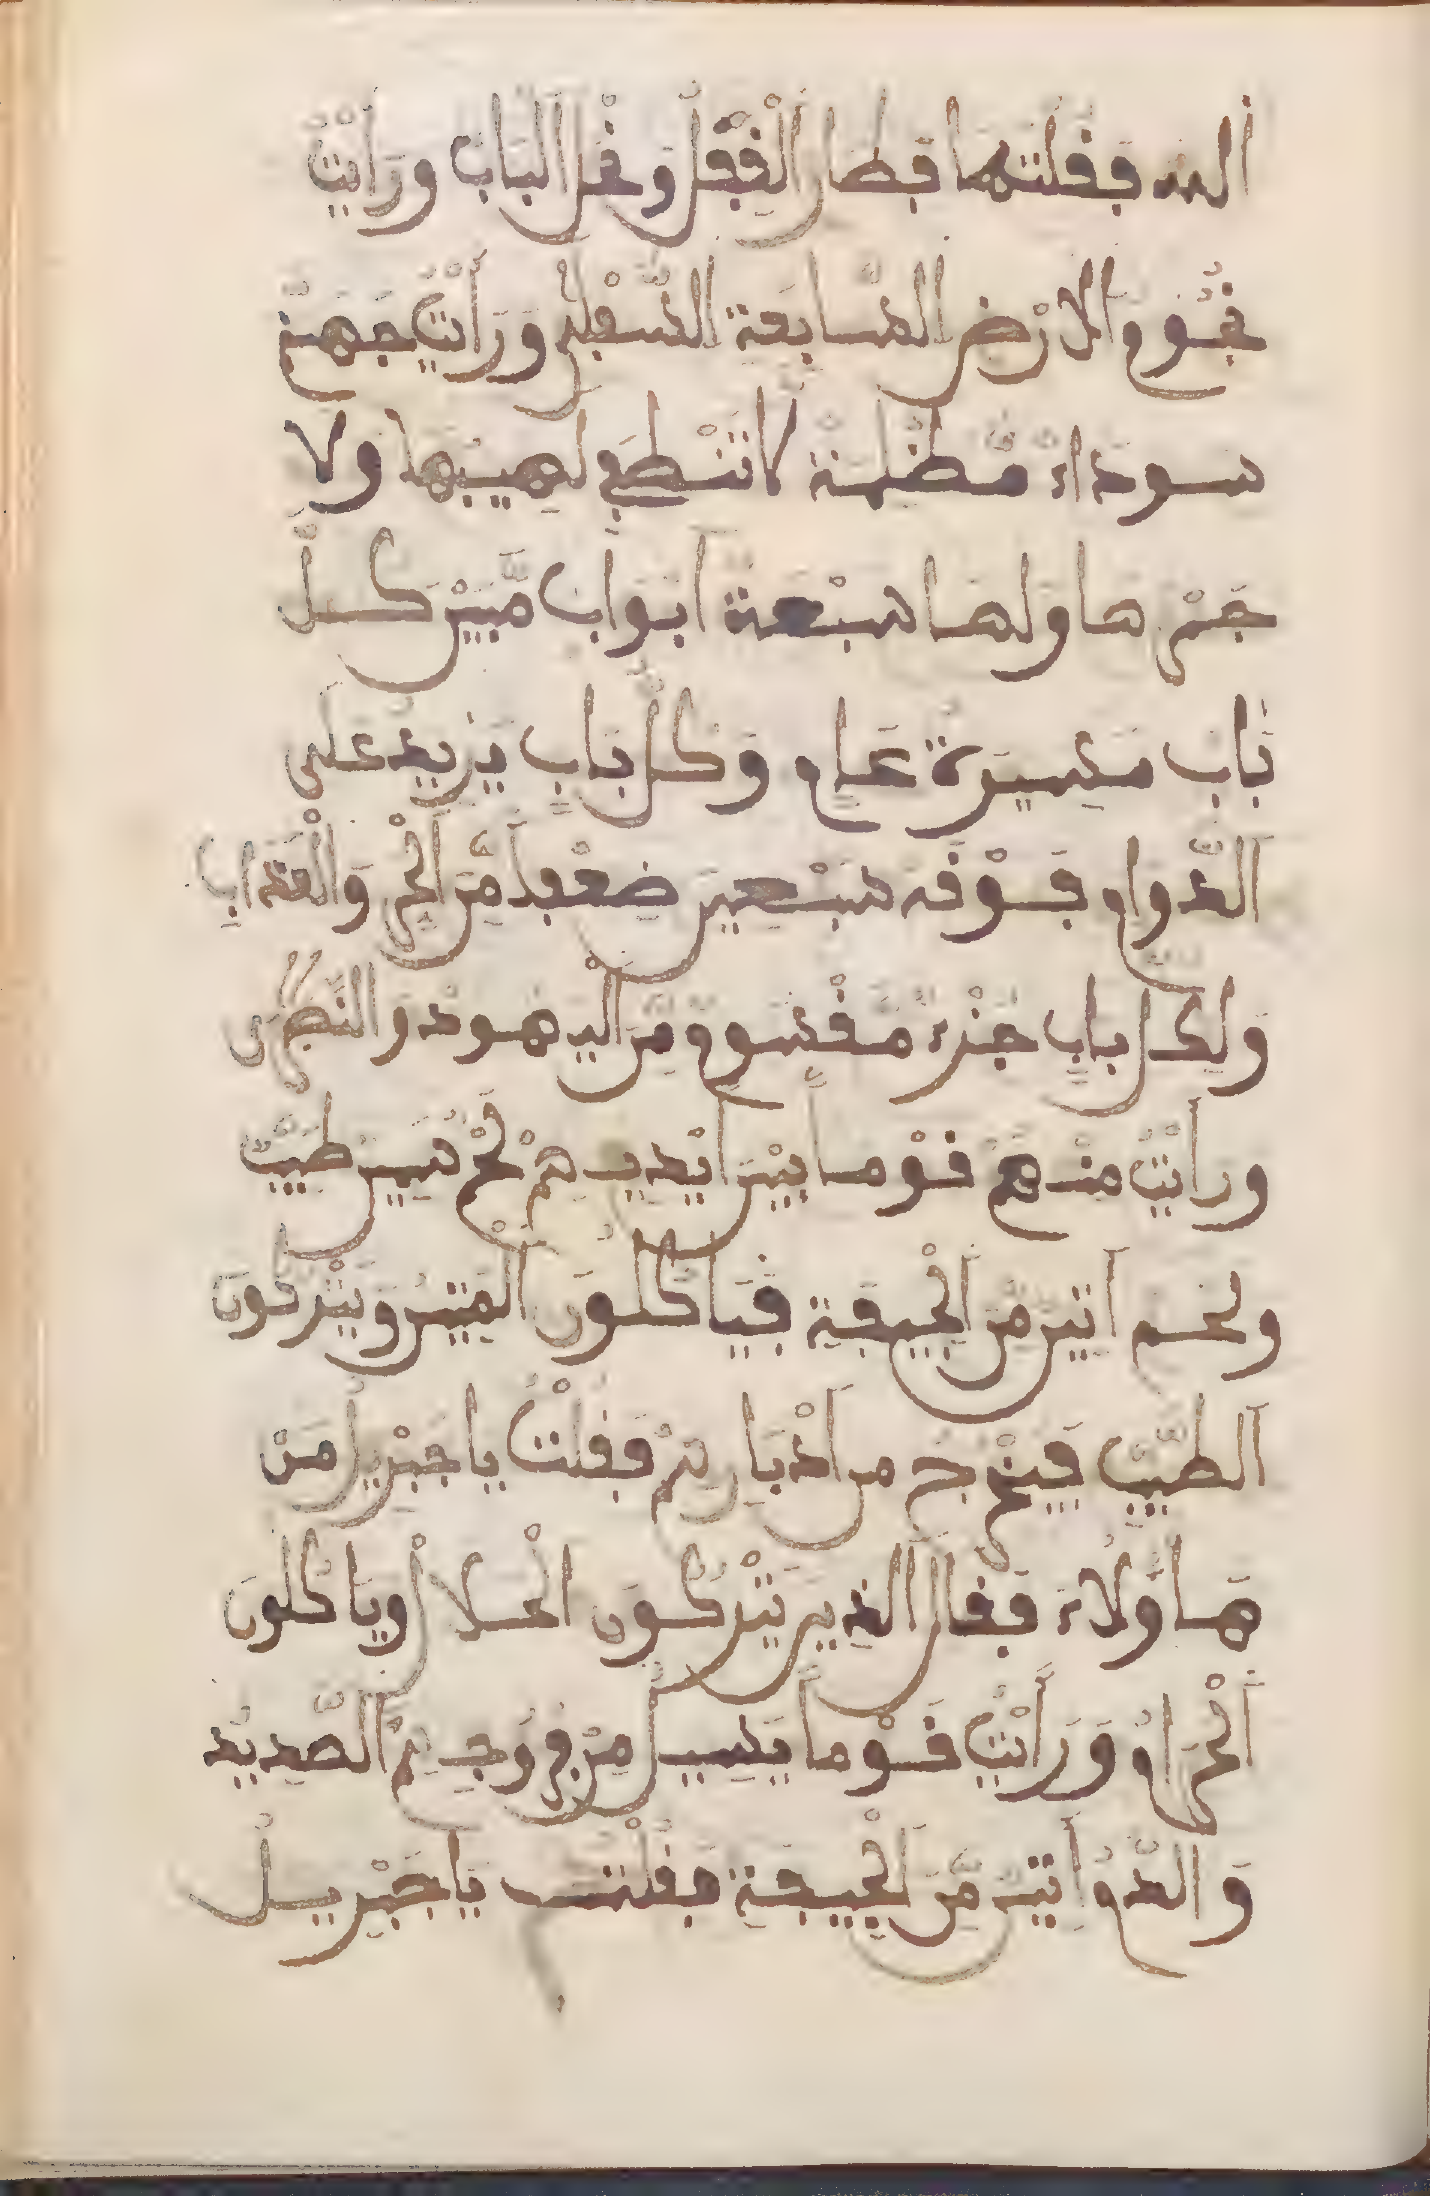 الله فقلتها فطار القفل وخر الباب ورأيت
تخوم الارض السابعة السفلى ورأيت جهنم
سوداء مظلمة لا تنطفي لهيبها ولا
جمرها ولها سبعة ابواب مّبين كلّ
باب مسيرة عام وكلّ باب يزيد على
الذي فوقه سبعين ضعفا من الحر والعذاب
ولكل باب جزء مقسوم من اليهود والنصرى
ورأيت منهم قوما بين أيديهم لحم سمين طيّب
ولحم انتن من الجيفة فياكلون المنتن ويتركون
الطيّب فيخرج من ادبارهم فقلت يا جبريل من
هاولاء فقال الذين يتركون الحلال وياكلون
الحرام ورأيت قوما يسيل من فروجهم الصديد
والدم أنتن من الجيفة فقلت يا جبريل